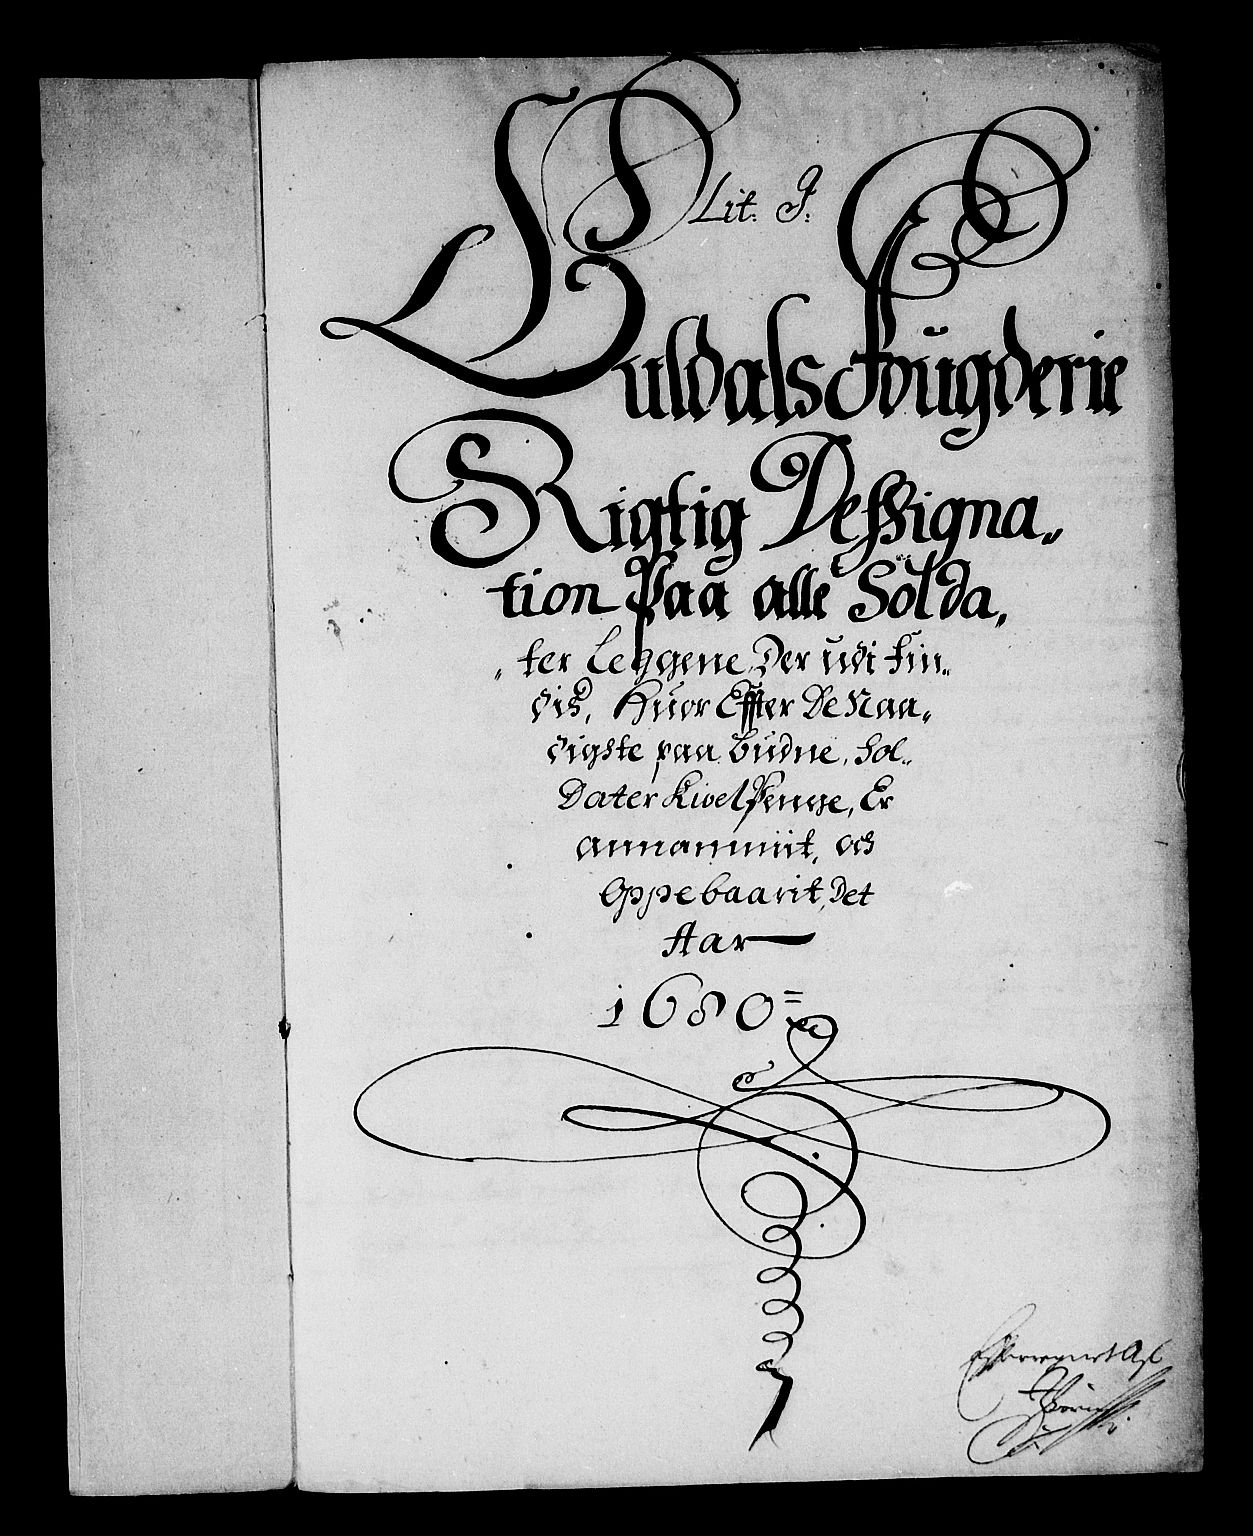 Lit: J:
Guldals Fougderie
Rigtig Dessigna„
tion paa alle Solda„
„ter Leggene, Der udi fin„
dis, Huor Effter De Naa„
digste paa budne, Sol„
Dater Kivelpenge, Er
annammit, och
Oppebaarit, Det
Aar
1680